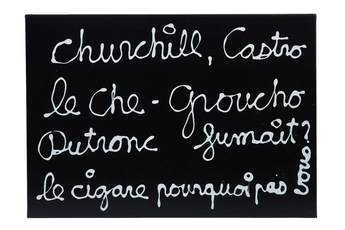 Churchill, Castro
le che - Groucho
Dutronc fumait?
le cigare pourquoi pas vous